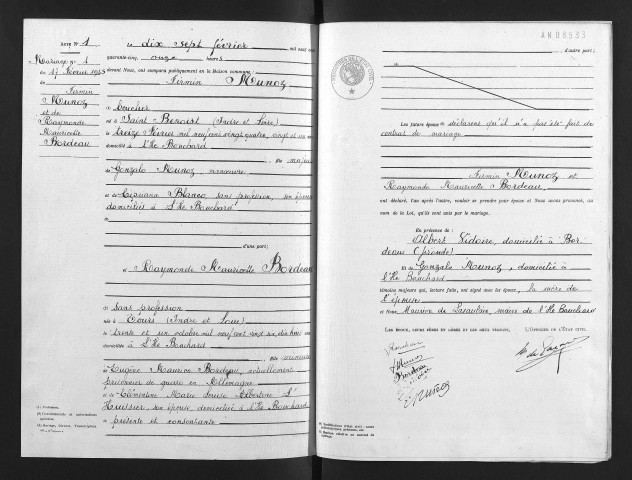 ACTE N° 1
Mariage N° 1
du 17 Février 1945
Firmin
Munoz
et de
Raymonde
Mauricette
Bordeau
Le dix sept février mil neuf cent
quarante-cinq, onze heures
devant Nous, ont comparu publiquement en la Maison commune :
Firmin Munoz
boucher
né à Saint Benoist (Indre et Loire)
le treize Février mil neuf cent vingt quatre, vingt et un ans
domicilié à l'Ile Bouchard
fils majeur
de Gonzalo Munoz, manœuvre
et de Cipriana Blanco, sans profession, son épouse
domiciliés à l'Ile Bouchard
d'une part;
et Raymonde Mauricette Bordeau
sans profession
née à Tours (Indre et Loire)
le trente et un octobre mil neuf cent vingt six, dix huit ans
domiciliée à l'Ile Bouchard
fille mineure
de Eugène Maurice Bordeau, actuellement
prisonnier de guerre en Allemagne
et de Clémentine Marie Louise Albertine
son épouse, domiciliée à l'Ile Bouchard
présente et consentante
(1) Profession.
AN 08533
d'autre part;
Les futurs époux déclarent qu'il n'a pas été fait de
contrat de mariage
Firmin Munoz et
Raymonde Mauricette Bordeau,
ont déclaré, l'un après l'autre, vouloir se prendre pour époux et Nous avons prononcé, au
nom de la Loi, qu'ils sont unis par le mariage.
En présence de :
Albert Vidoire, domicilié à Bor
deaux (Gironde)
et de Gonzalo Munoz, domicilié à
l'Ile Bouchard
témoins majeurs qui, lecture faite, ont signé avec les époux, la mère de
l'épouse
et Nous, Maurice de maire de l'Ile Bouchard
LES ÉPOUX, LEURS PÈRES ET MÈRES ET LES DEUX TÉMOINS, L'OFFICIER DE L'ÉTAT CIVIL
R Bordeau
F Munoz
Bordeau
G. Munoz